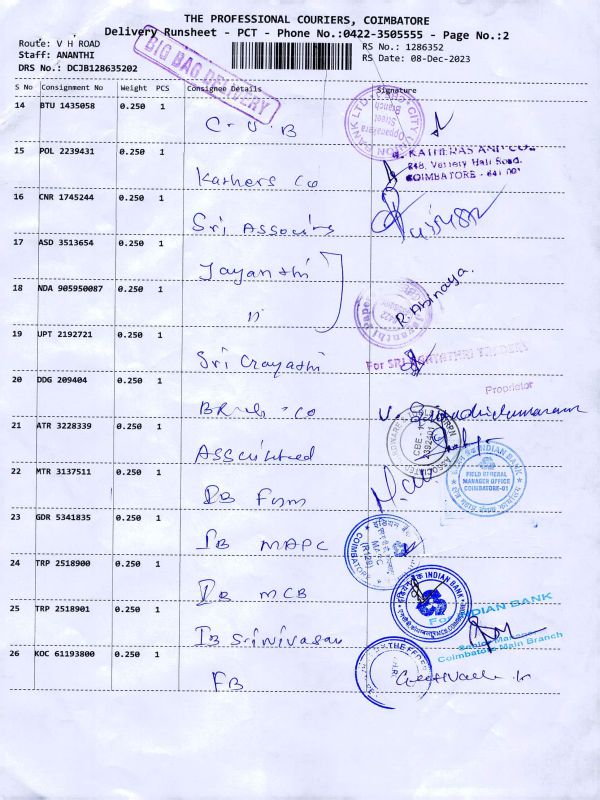 THE PROFESSIONAL COURIERS, COIMBATORE
Delivery Runsheet - PCT - Phone No.:0422-3505555 - Page No.:2
Route: V H ROAD
RS No.: 1286352
Staff: ANANTHI
RS Date: 08-Dec-2023
DRS No.: DCJB128635202
BIG BAG DELIVERY
S No Consignment No Weight PCS Consignee Details Signature
14 BTU 1435058 0.250 1
CITY
Oppanakara
Street
Branch
C.U.B
15 POL 2239431 0.250 1
248, Variety Hall Road,
COIMBATORE - 641 001
Kathers Co
16 CNR 1745244 0.250 1
Sri
17 ASD 3513654 0.250 1
Jayanthi
18 NDA 905950087 0.250 1
R. Abinaya.
"
19 UPT 2192721 0.250 1
For SRI
Sri
20 DDG 209404 0.250 1
Proprietor
21 ATR 3228339 0.250 1
CBE - 1
22 MTR 3137511 0.250 1
INDIAN BANK
FIELD GENERAL
MANAGER OFFICE
COIMBATORE-01
IB
23 GDR 5341835 0.250 1
इंडियन बैंक
MAPC
COIMBATORE
IB MAPC
24 TRP 2518900 0.250 1
INDIAN BANK
IB MCB
25 TRP 2518901 0.250 1
For INDIAN BANK
Senior Manager
Coimbatore Main Branch
IB Srinivasan
26 KOC 61193800 0.250 1
THE FEDERAL
FB